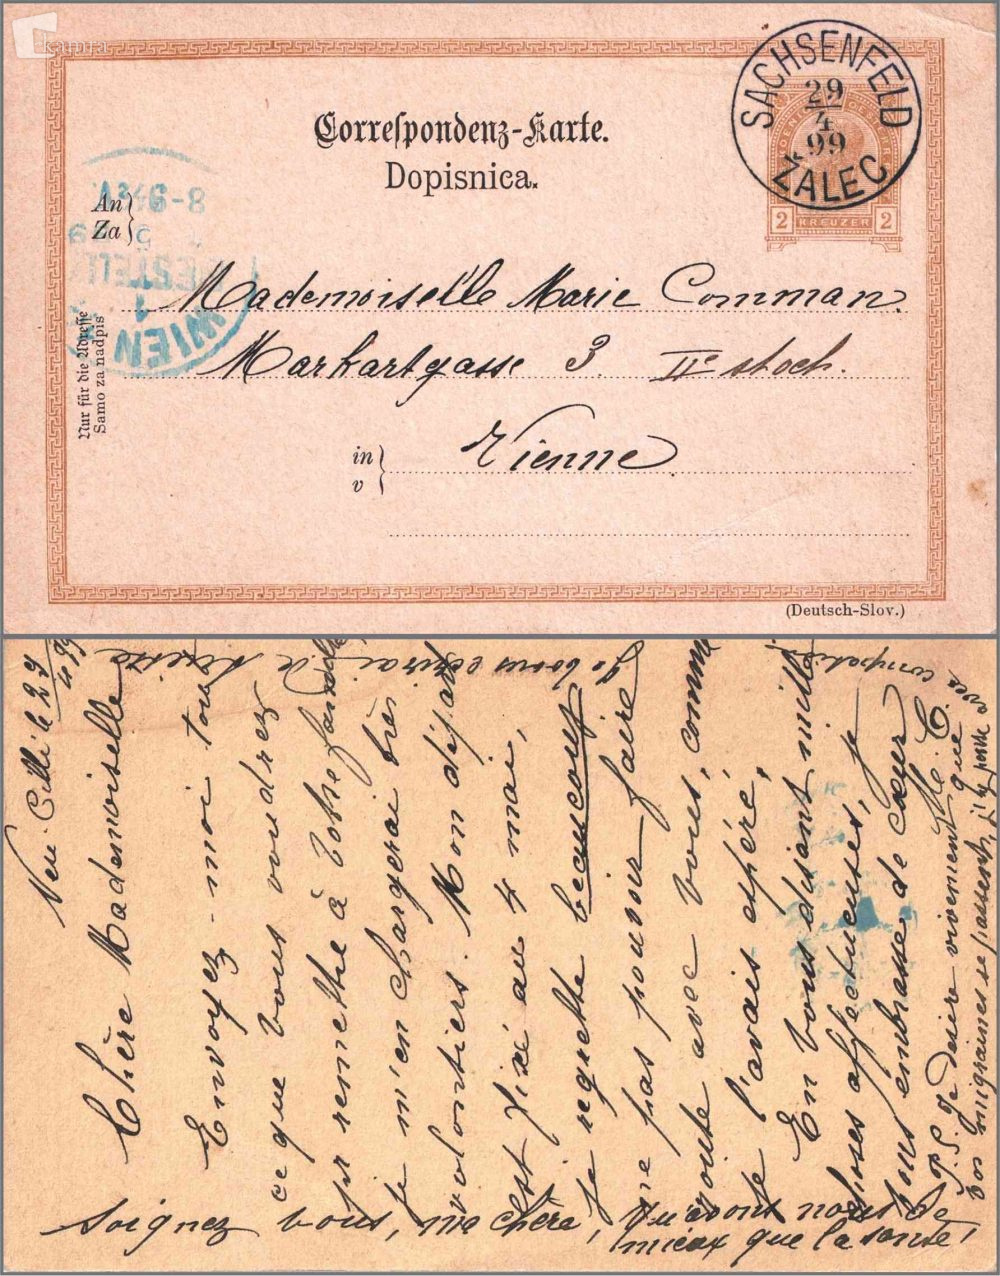 Correspondenz-Karte.
Dopisnica.
SACHSENFELD
29
4
99
ŽALEC
2 KREUZER 2
An
Za
8-9 V.
BESTELL
1
WIEN
Mademoiselle Marie Comman.
Markartgasse 3. IIe stock.
in
v
Vienne
Nur für die Adresse
Samo za nadpis
(Deutsch-Slov.)
Neu-Cilli le 29/4 99
Chère Mademoiselle
Envoyez-moi tout
ce que vous voudrez
pr remettre à votre famille
je m'en chargerai très
volontiers. Mon départ
est fixé au 4 mai,
Je regrette beaucoup
ne pas pouvoir faire
route avec vous, comme
je l'avais espéré,
En vous disant mille
choses affectueuses, je
vous embrasse de cœur
M. C.
P.S. Je désire vivement que
vos migraines se passent, j'y pense avec
compation
Je vous écrirai de
Soignez vous, ma chère, qu'avons nous de
mieux que la santé!